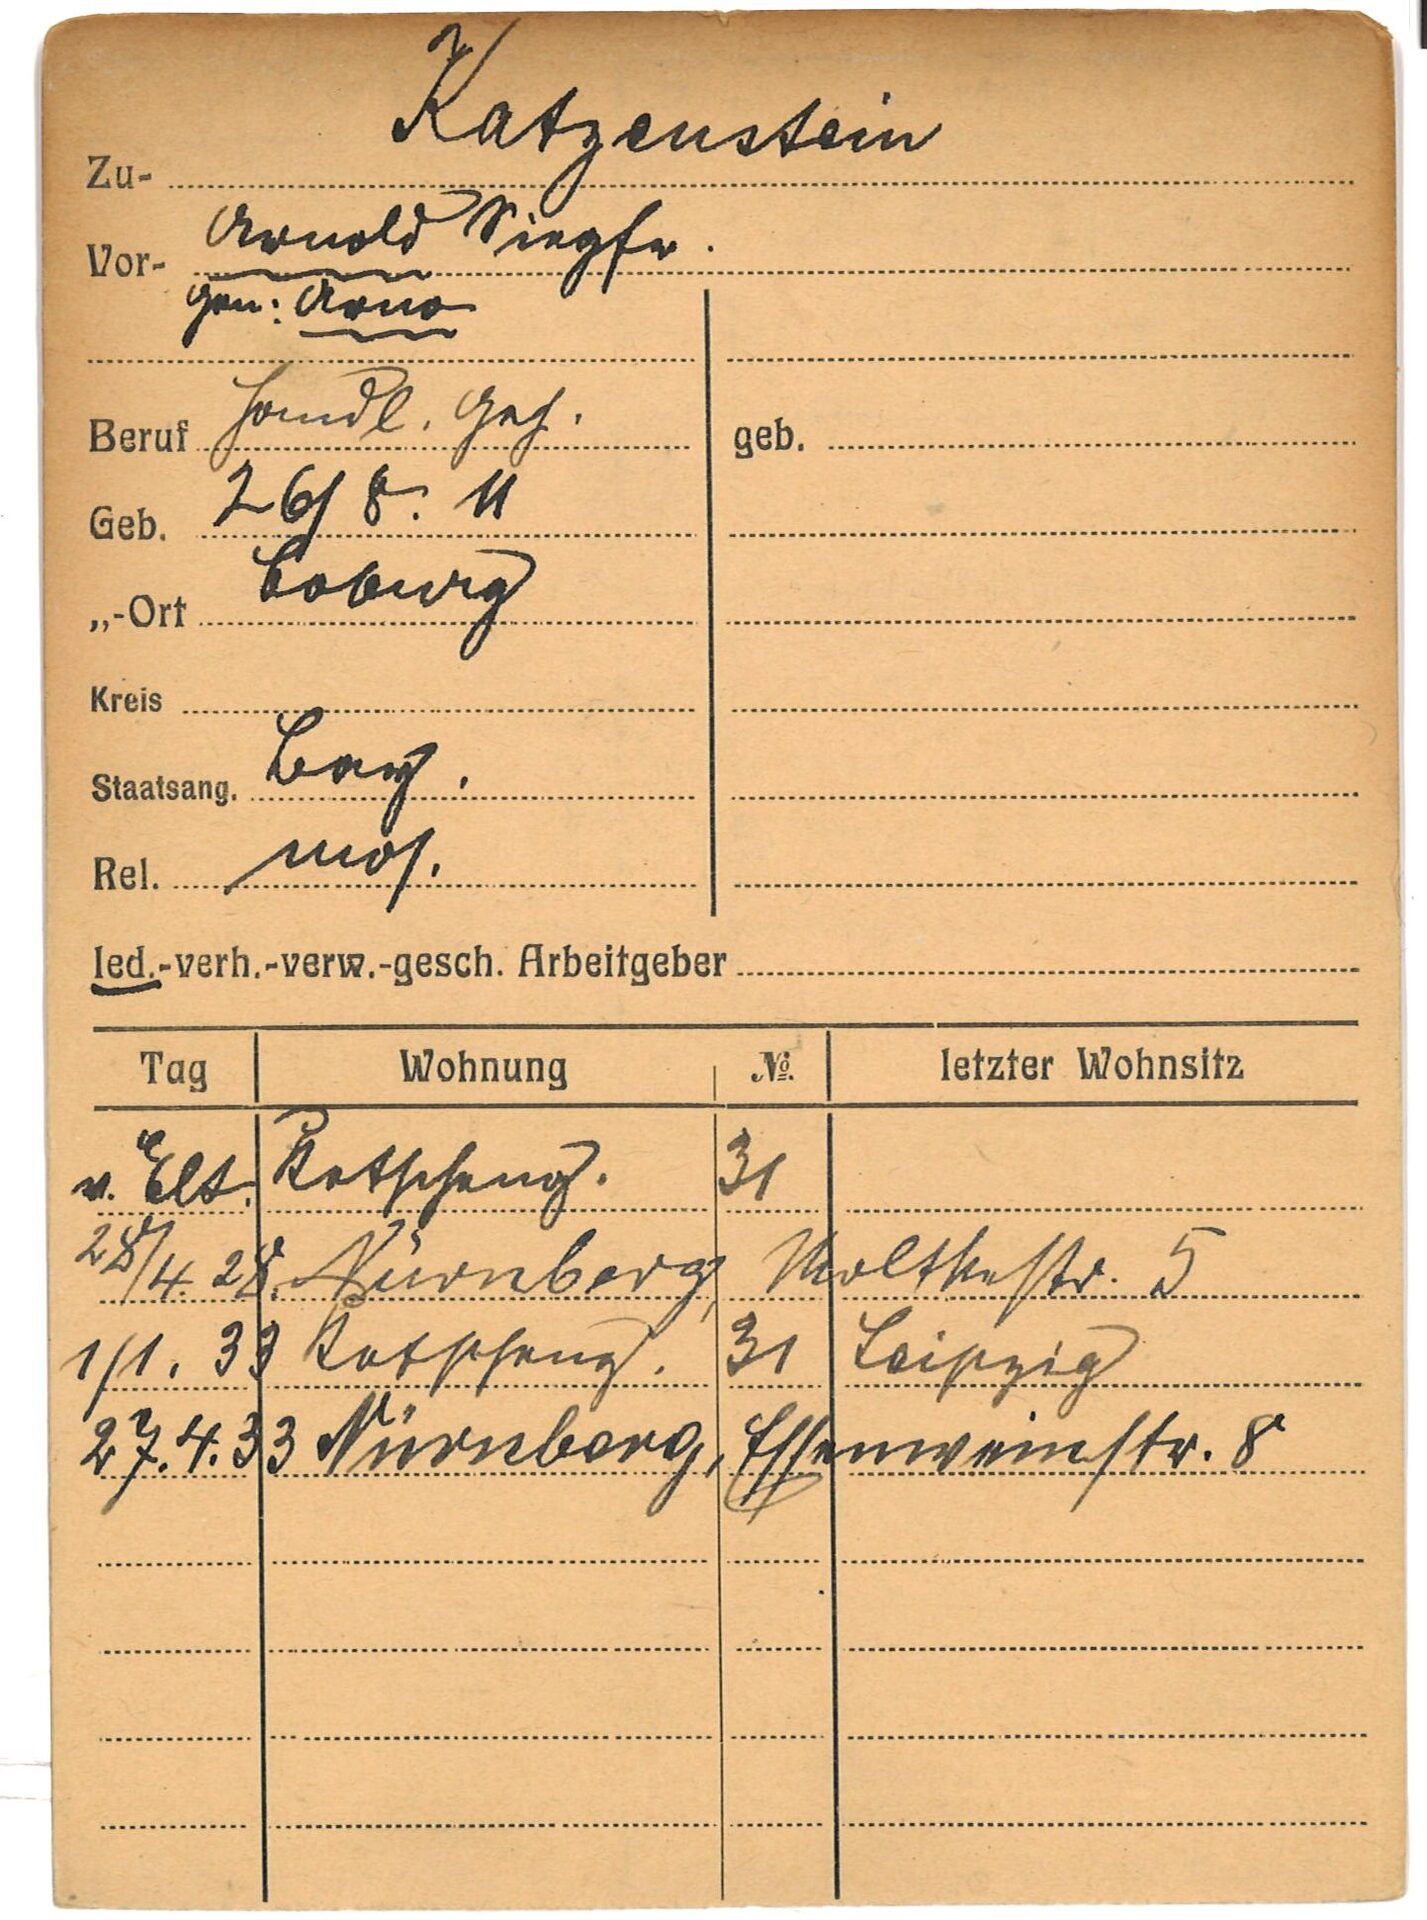 Katzenstein
Zu-
Vor- Arnold Siegfr.
gen: Arno
Beruf Handl. Geh.
geb.
Geb. 26/8. 11
„-Ort Coburg
Kreis
Staatsang. Bay.
Rel. mos.
led.-verh.-verw.-gesch. Arbeitgeber
Tag Wohnung № letzter Wohnsitz
v. Elt. 31
28/4. 28. Nürnberg, Moltkestr. 5
1/1. 33 31 Leipzig
27.4.33 Nürnberg, Essenweinstr. 8